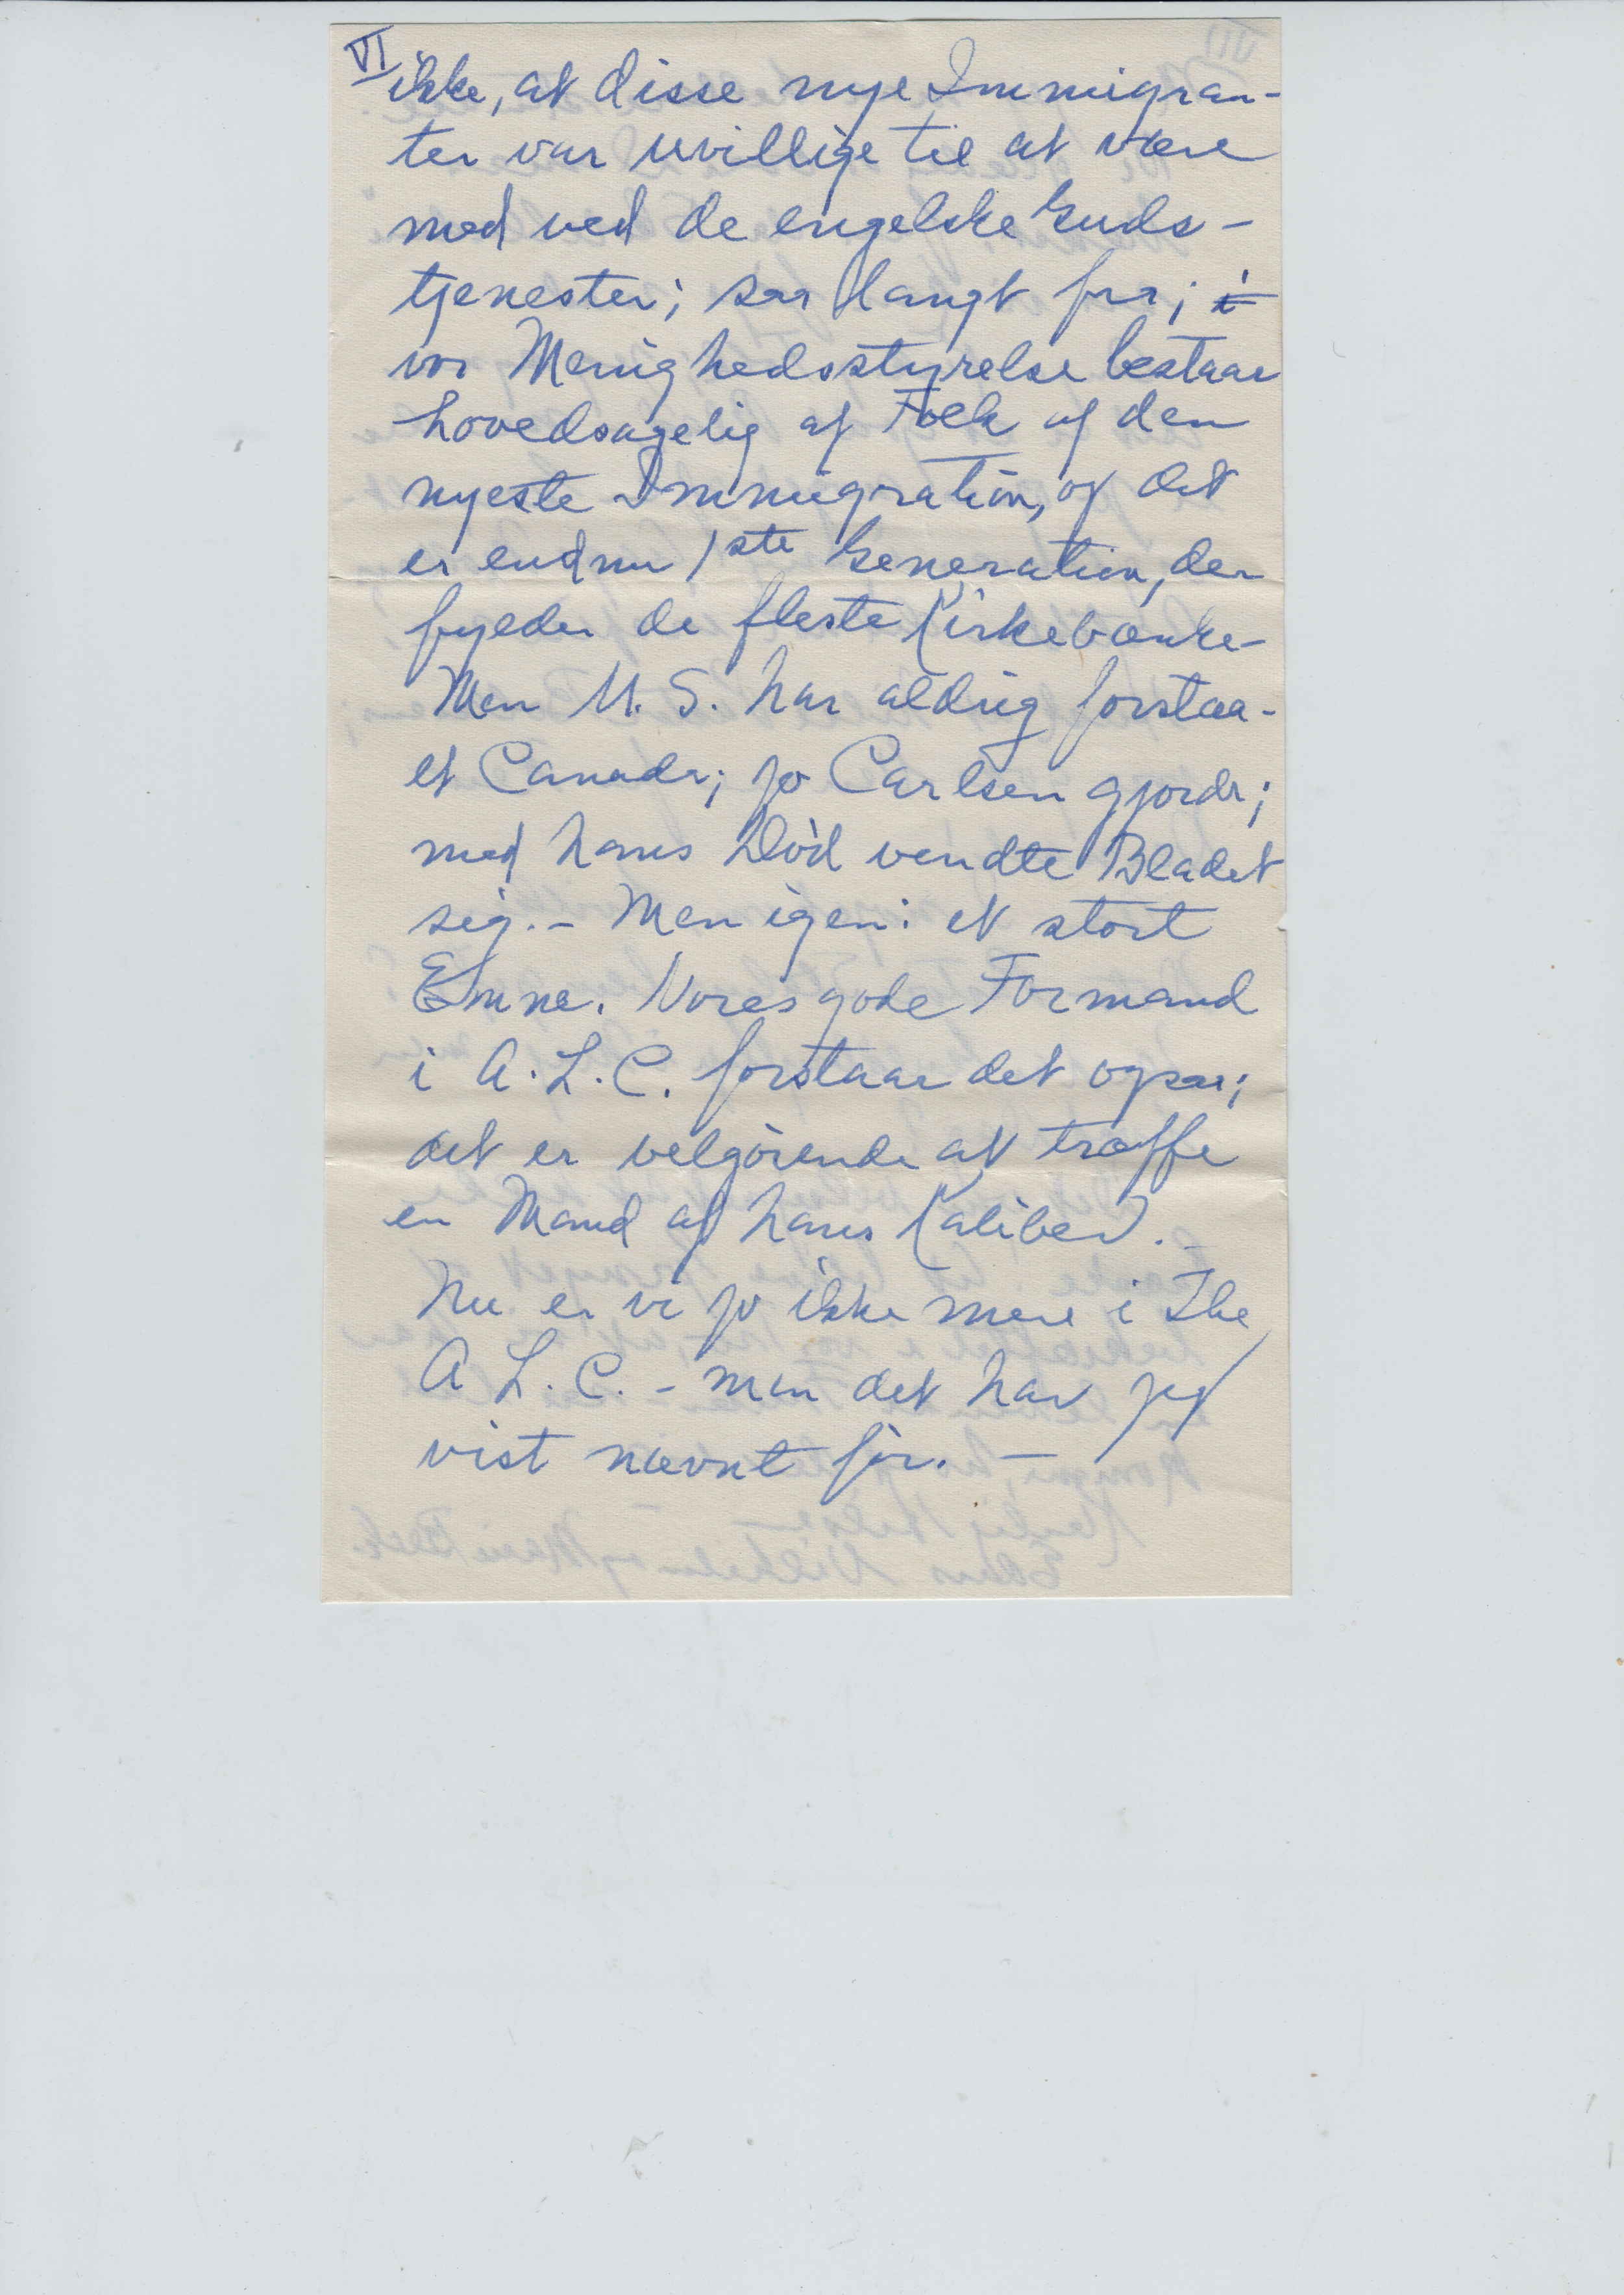 VI
ikke, at disse nye Immigran-
ter var uvillige til at være
med ved de engelske Guds-
tjenester; saa langt fra; i
vor Menighedsstyrelse bestaar
hovedsagelig af Folk af den
nyeste Immigration, og det
er endnu 1ste Generation, der
fylder de fleste Kirkebænke-
Men U. S. har aldrig forstaa-
et Canada; jo Carlsen gjorde;
med hans Død vendte Bladet
sig.- Men igen: et stort
Emne. Vores gode Formand
i A. L. C. forstaar det ogsaa;
det er velgørende at træffe
en Mand af hans Kaliber.-
Nu er vi jo ikke mere i The
A L. C. - men det har jeg
vist nævnt før. -